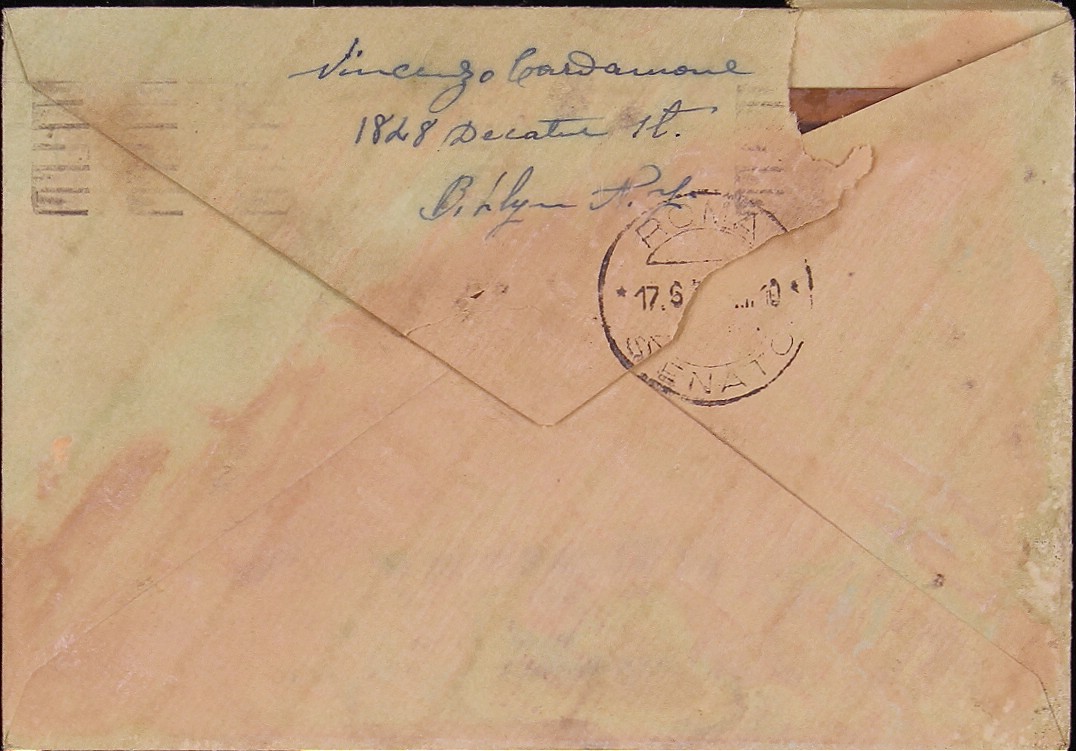 Vincenzo Cardamone
1828 Decatur St.
B'klyn N.Y.
ROMA
* 17.6 10 *
SENATO